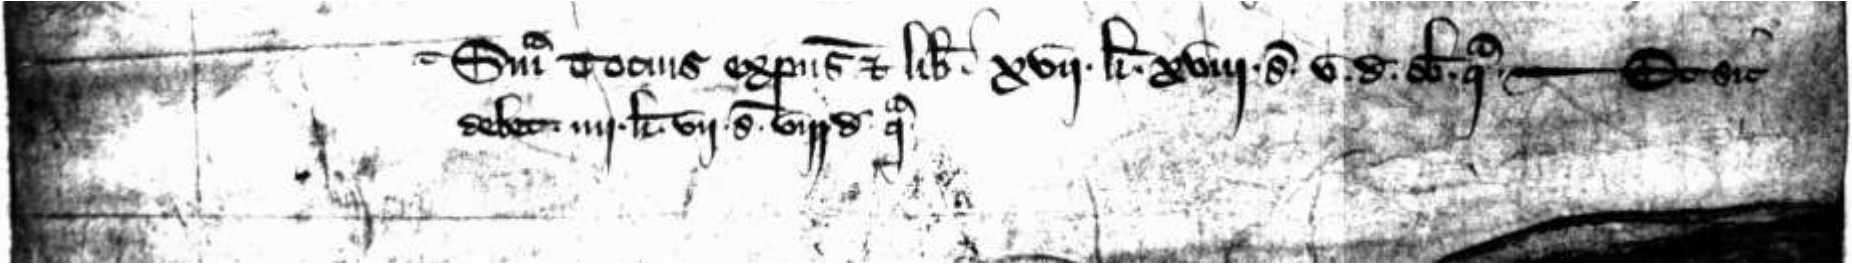 Smᵃ Tocius expns̄ ⁊ lib̄. xvij. li. xviij. s̄. v. d. ob. qᵃ. Et sic
debet. iiij. li. vij. s̄. viij d qᵃ.